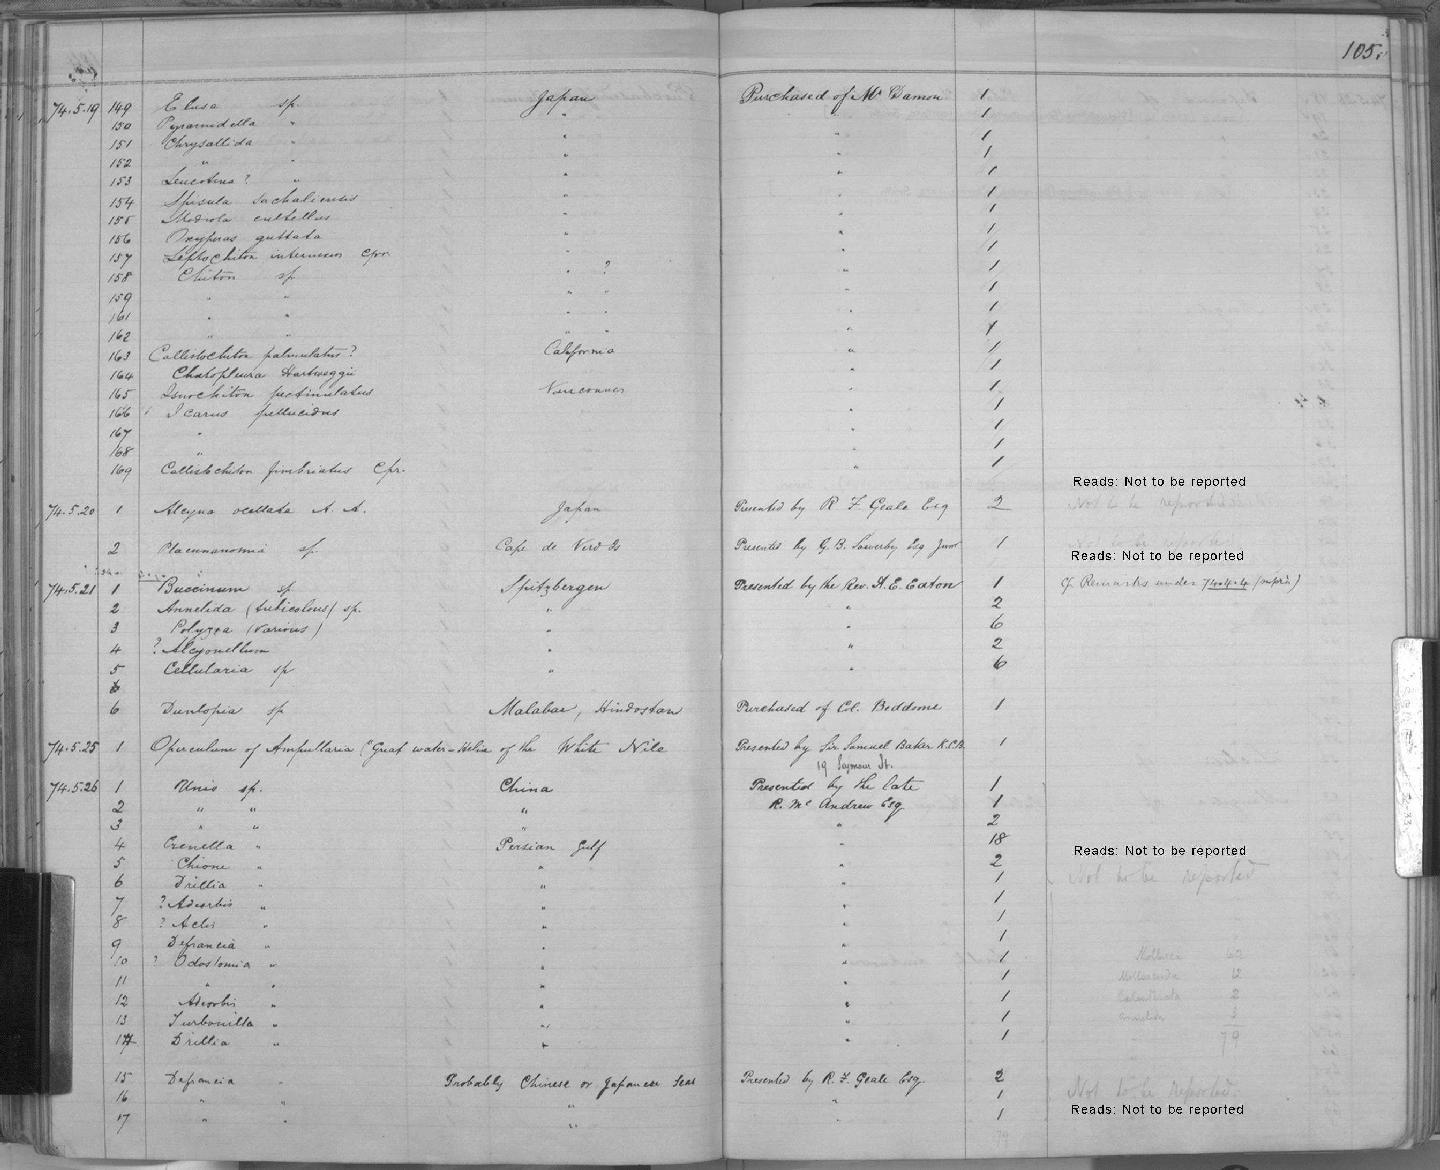 105.
74.5.19 149 Elusa sp. Japan Purchased of Mr Damon 1
150 Pyramidella " " " 1
151 Chrysallida " " " 1
152 " " " " 1
153 Leucotina? " " " 1
154 Spisula sachaliensis " " 1
155 Modiola cultellus " " 1
156 Oxyperas guttata " " 1
157 Leptochiton internexus Cpr. " " 1
158 Chiton sp " ? " 1
159 " " " " " 1
161 " " " " " 1
162 " " " " " 1
163 Callistochiton palmulatus? California " 1
164 Chatopleura Hartweggii " 1
165 Isnochiton pectinulatus Vancouver " 1
166 Icarus pellucidus " 1
167 " " 1
168 " " 1
169 Callistochiton fimbriatus Cpr. " 1
Reads: Not to be reported
74.5.20 1 Alcyna ocellata A. A. Japan Presented by R F Geale Esq 2 Not to be reported
2 Placunanomia sp. Cape de Verd Is Presented by G. B. Sowerby Esq Junr 1
Reads: Not to be reported
74.5.21 1 Buccinum sp Spitzbergen Presented by the Rev. A. E. Eaton 1 Cf. Remarks under 74.4.4 (supra)
2 Annelida (tubicolous) sp. " " 2
3 Polyzoa (various) " 6
4 ? Alcyonellum " " 2
5 Cellularia sp " " 6
6
6 Dunlopia sp Malabar, Hindostan Purchased of Col. Beddome 1
74.5.25 1 Operculum of Ampullaria ("Great water-Helix of the White Nile Presented by Sir Samuel Baker K.C.B. 1
19 Seymour St.
74.5.26 1 Unio sp. China Presented by the late 1
2 " " " R. Mc Andrew Esq 1
3 " " " " 2
4 Crenella " Persian Gulf " 18
Reads: Not to be reported
5 Chione " " " 2
6 Drillia " " " 1 Not to be reported
7 ? Adeorbis " " " 1
8 ? Aclis " " " 1
9 Defrancia " " " 1
10 ? Odostomia " " " 1 Mollusca 62
11 " " " " 1 Molluscoida 12
12 Adeorbis " " " 1 Calentrata 2
13 Turbonilla " " " 1 Annelida 3
14 Drillia " " " 1 79
15 Defrancia " Probably Chinese or Japanese Seas Presented by R. F. Geale Esq. 2
16 " " " " 1 Not to be reported.
17 " " " " 1
Reads: Not to be reported
79